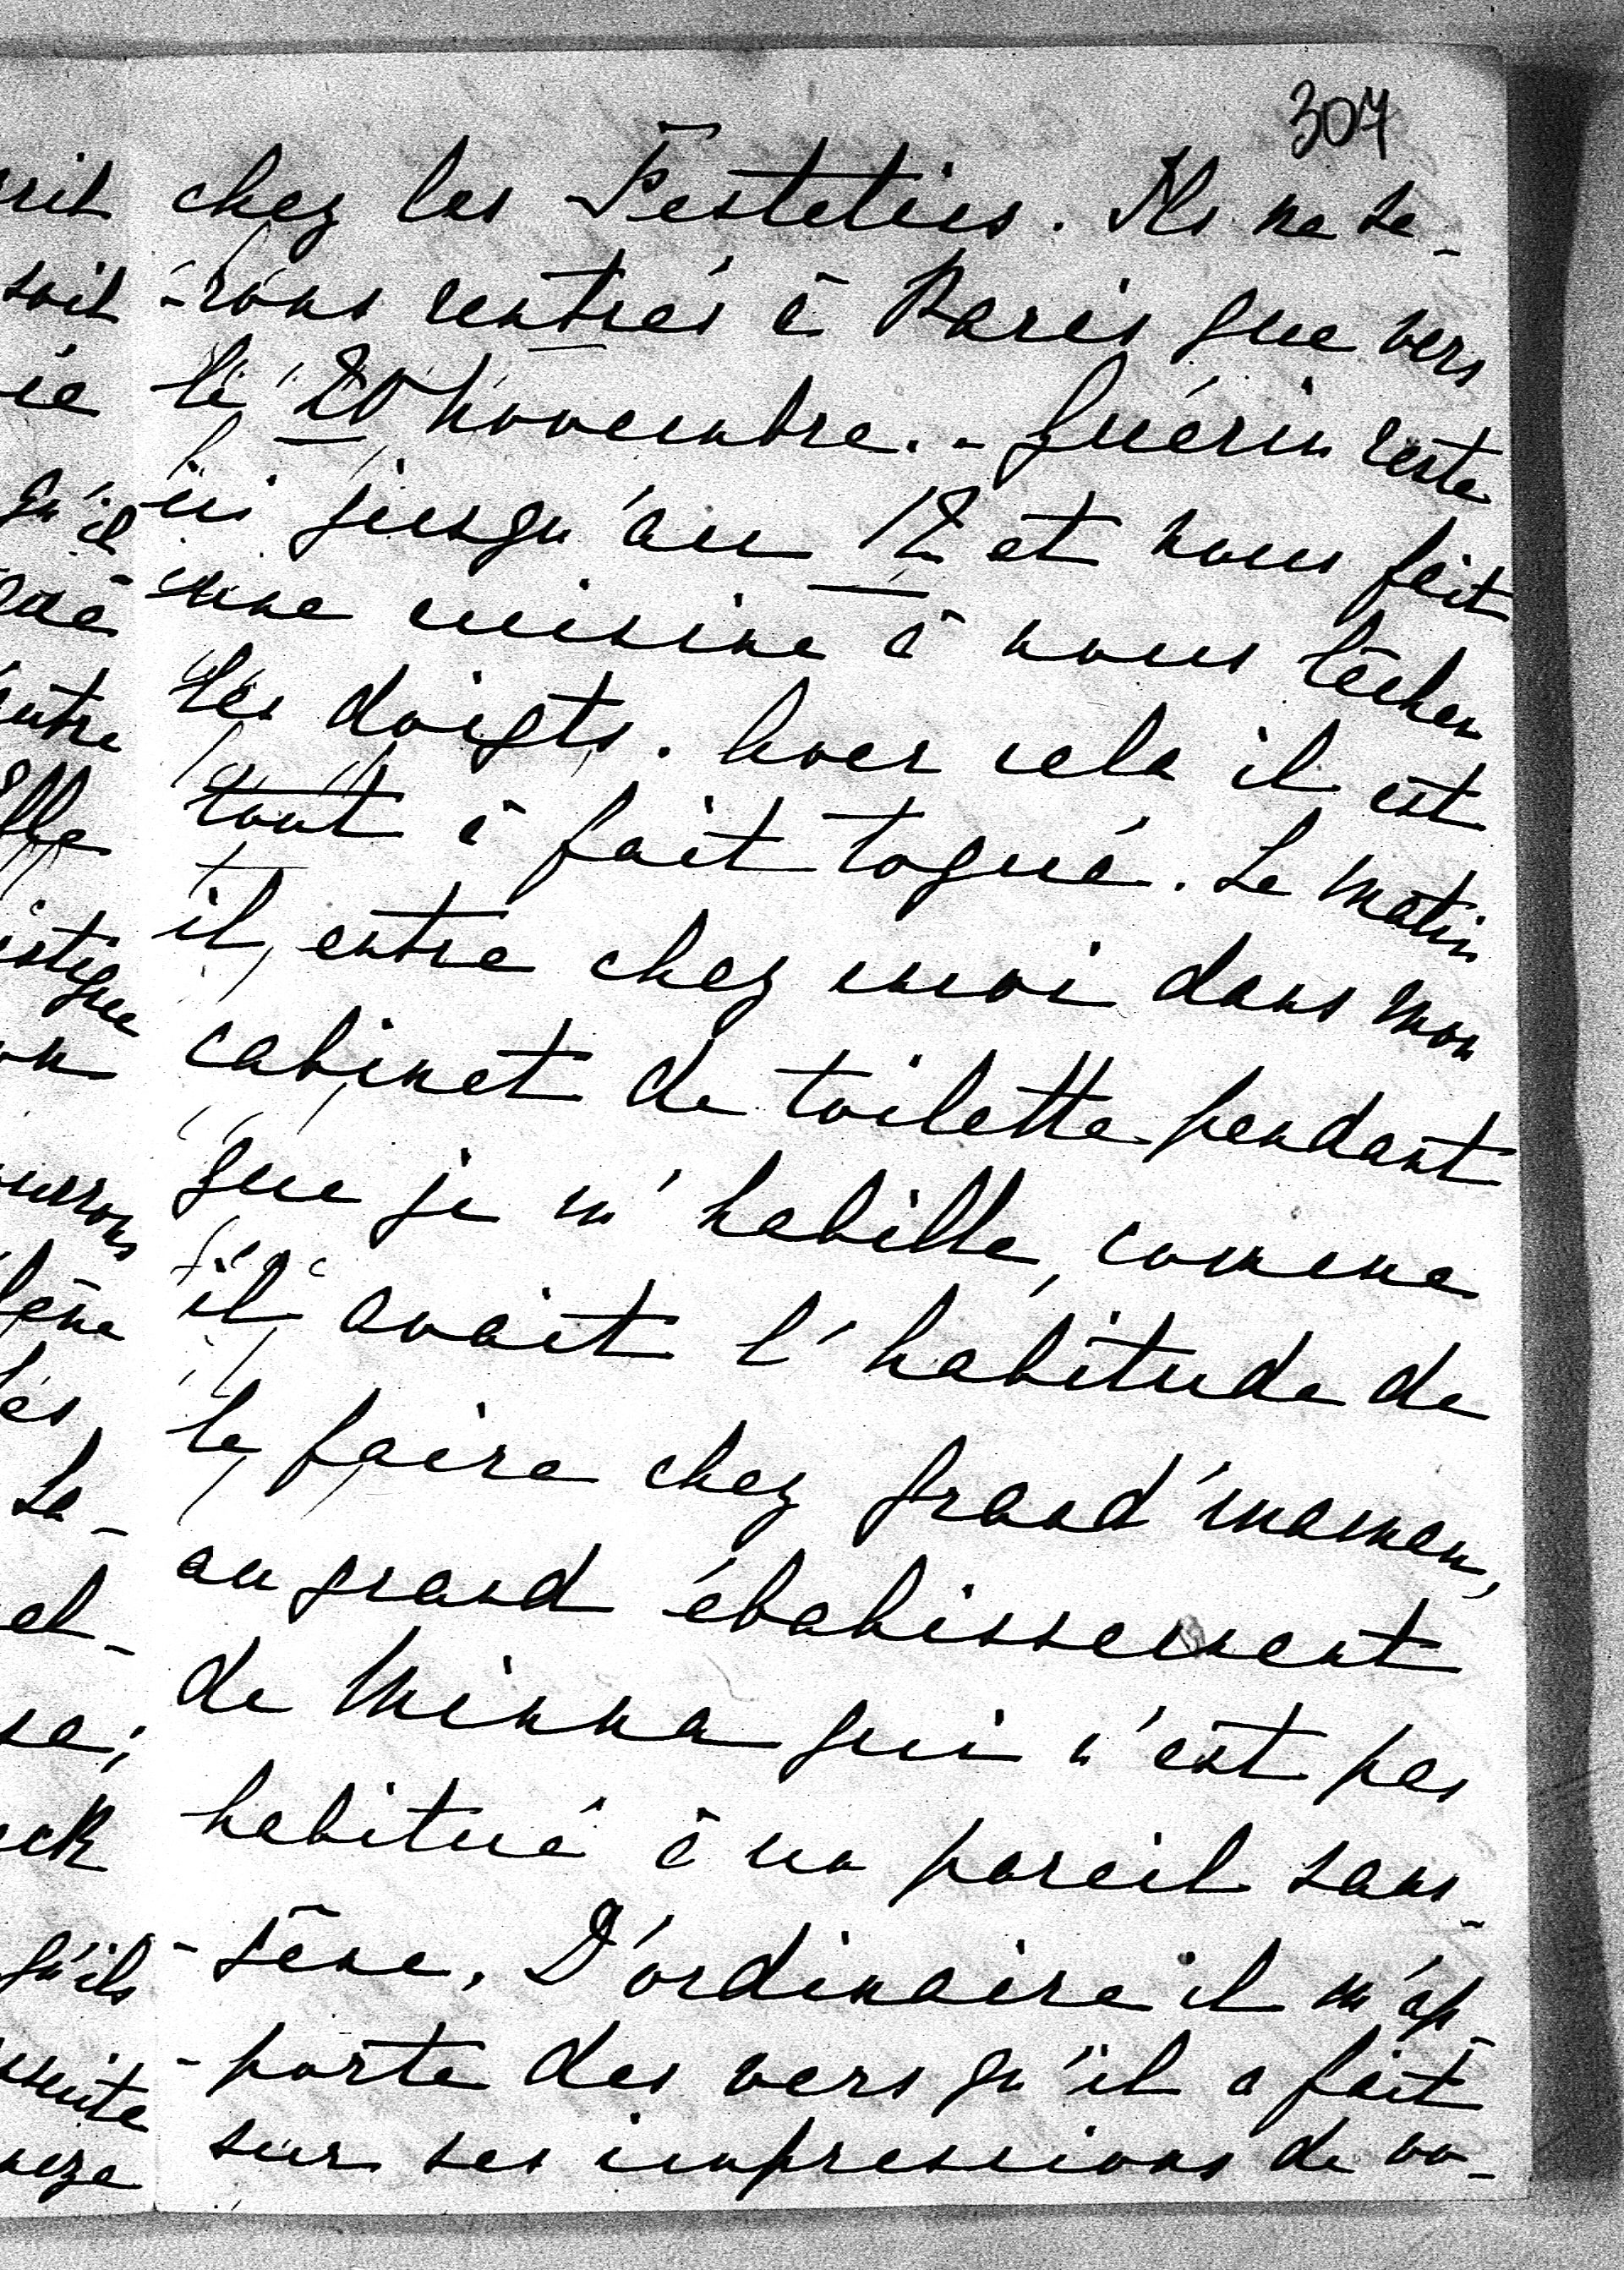 307
chez les Festetics. Ils ne se-
-rons rentrés à Paris que vers
le 20 novembre. - Guérin reste
ici jusqu'au 12 et nous fait
une cuisine à nous lécher
les doigts. Avec cela il est
tout à fait toqué. Le matin
il entre chez moi dans mon
cabinet de toilette pendant
que je m'habille, comme
il avait l'habitude de
le faire chez grand'maman,
au grand ébahissement
de Minna qui n'est pas
habitué à un pareil sans-
-gêne. D'ordinaire il m'ap-
-porte des vers qu'il a fait
sur ses impressions de vo-